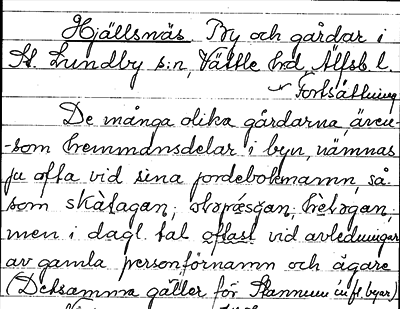 Hjällsnäs By och gårdar i
St. Lundby s:n, Vättle hd, Älfsb. l.
Fortsättning
De många olika gårdarna, även-
-som hemmansdelar i byn, nämnas
ju ofta vid sina jordeboksnamn, så
som skàtagan;
men i dagl. tal oftast vid avledningar
av gamla personförnamn och ägare
(Detsamma gäller för Stannum